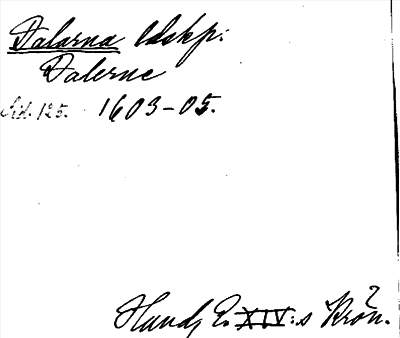 Dalarna ldskp:
Dalerne
Sid. 125. 1603-05.
Handz E. XIV:s Krön.